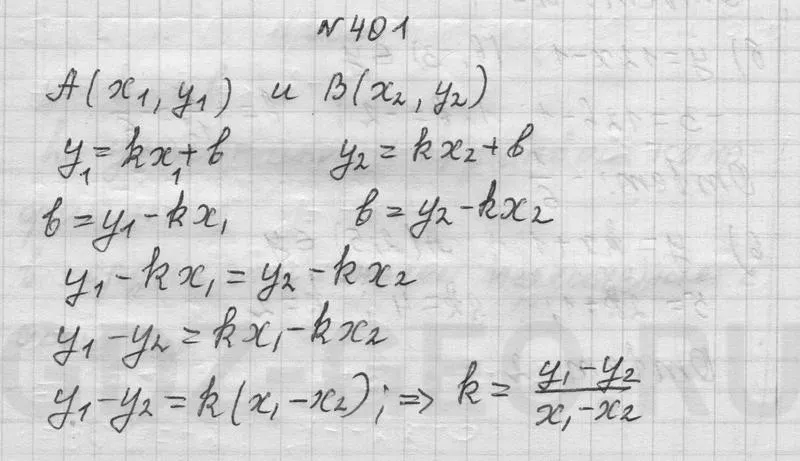 № 401
A(x₁, y₁) и B(x₂, y₂)
y₁ = kx₁ + в y₂ = kx₂ + в
в = y₁ - kx₁ в = y₂ - kx₂
y₁ - kx₁ = y₂ - kx₂
y₁ - y₂ = kx₁ - kx₂
y₁ - y₂ = k(x₁ - x₂); => k = (y₁ - y₂)/(x₁ - x₂)